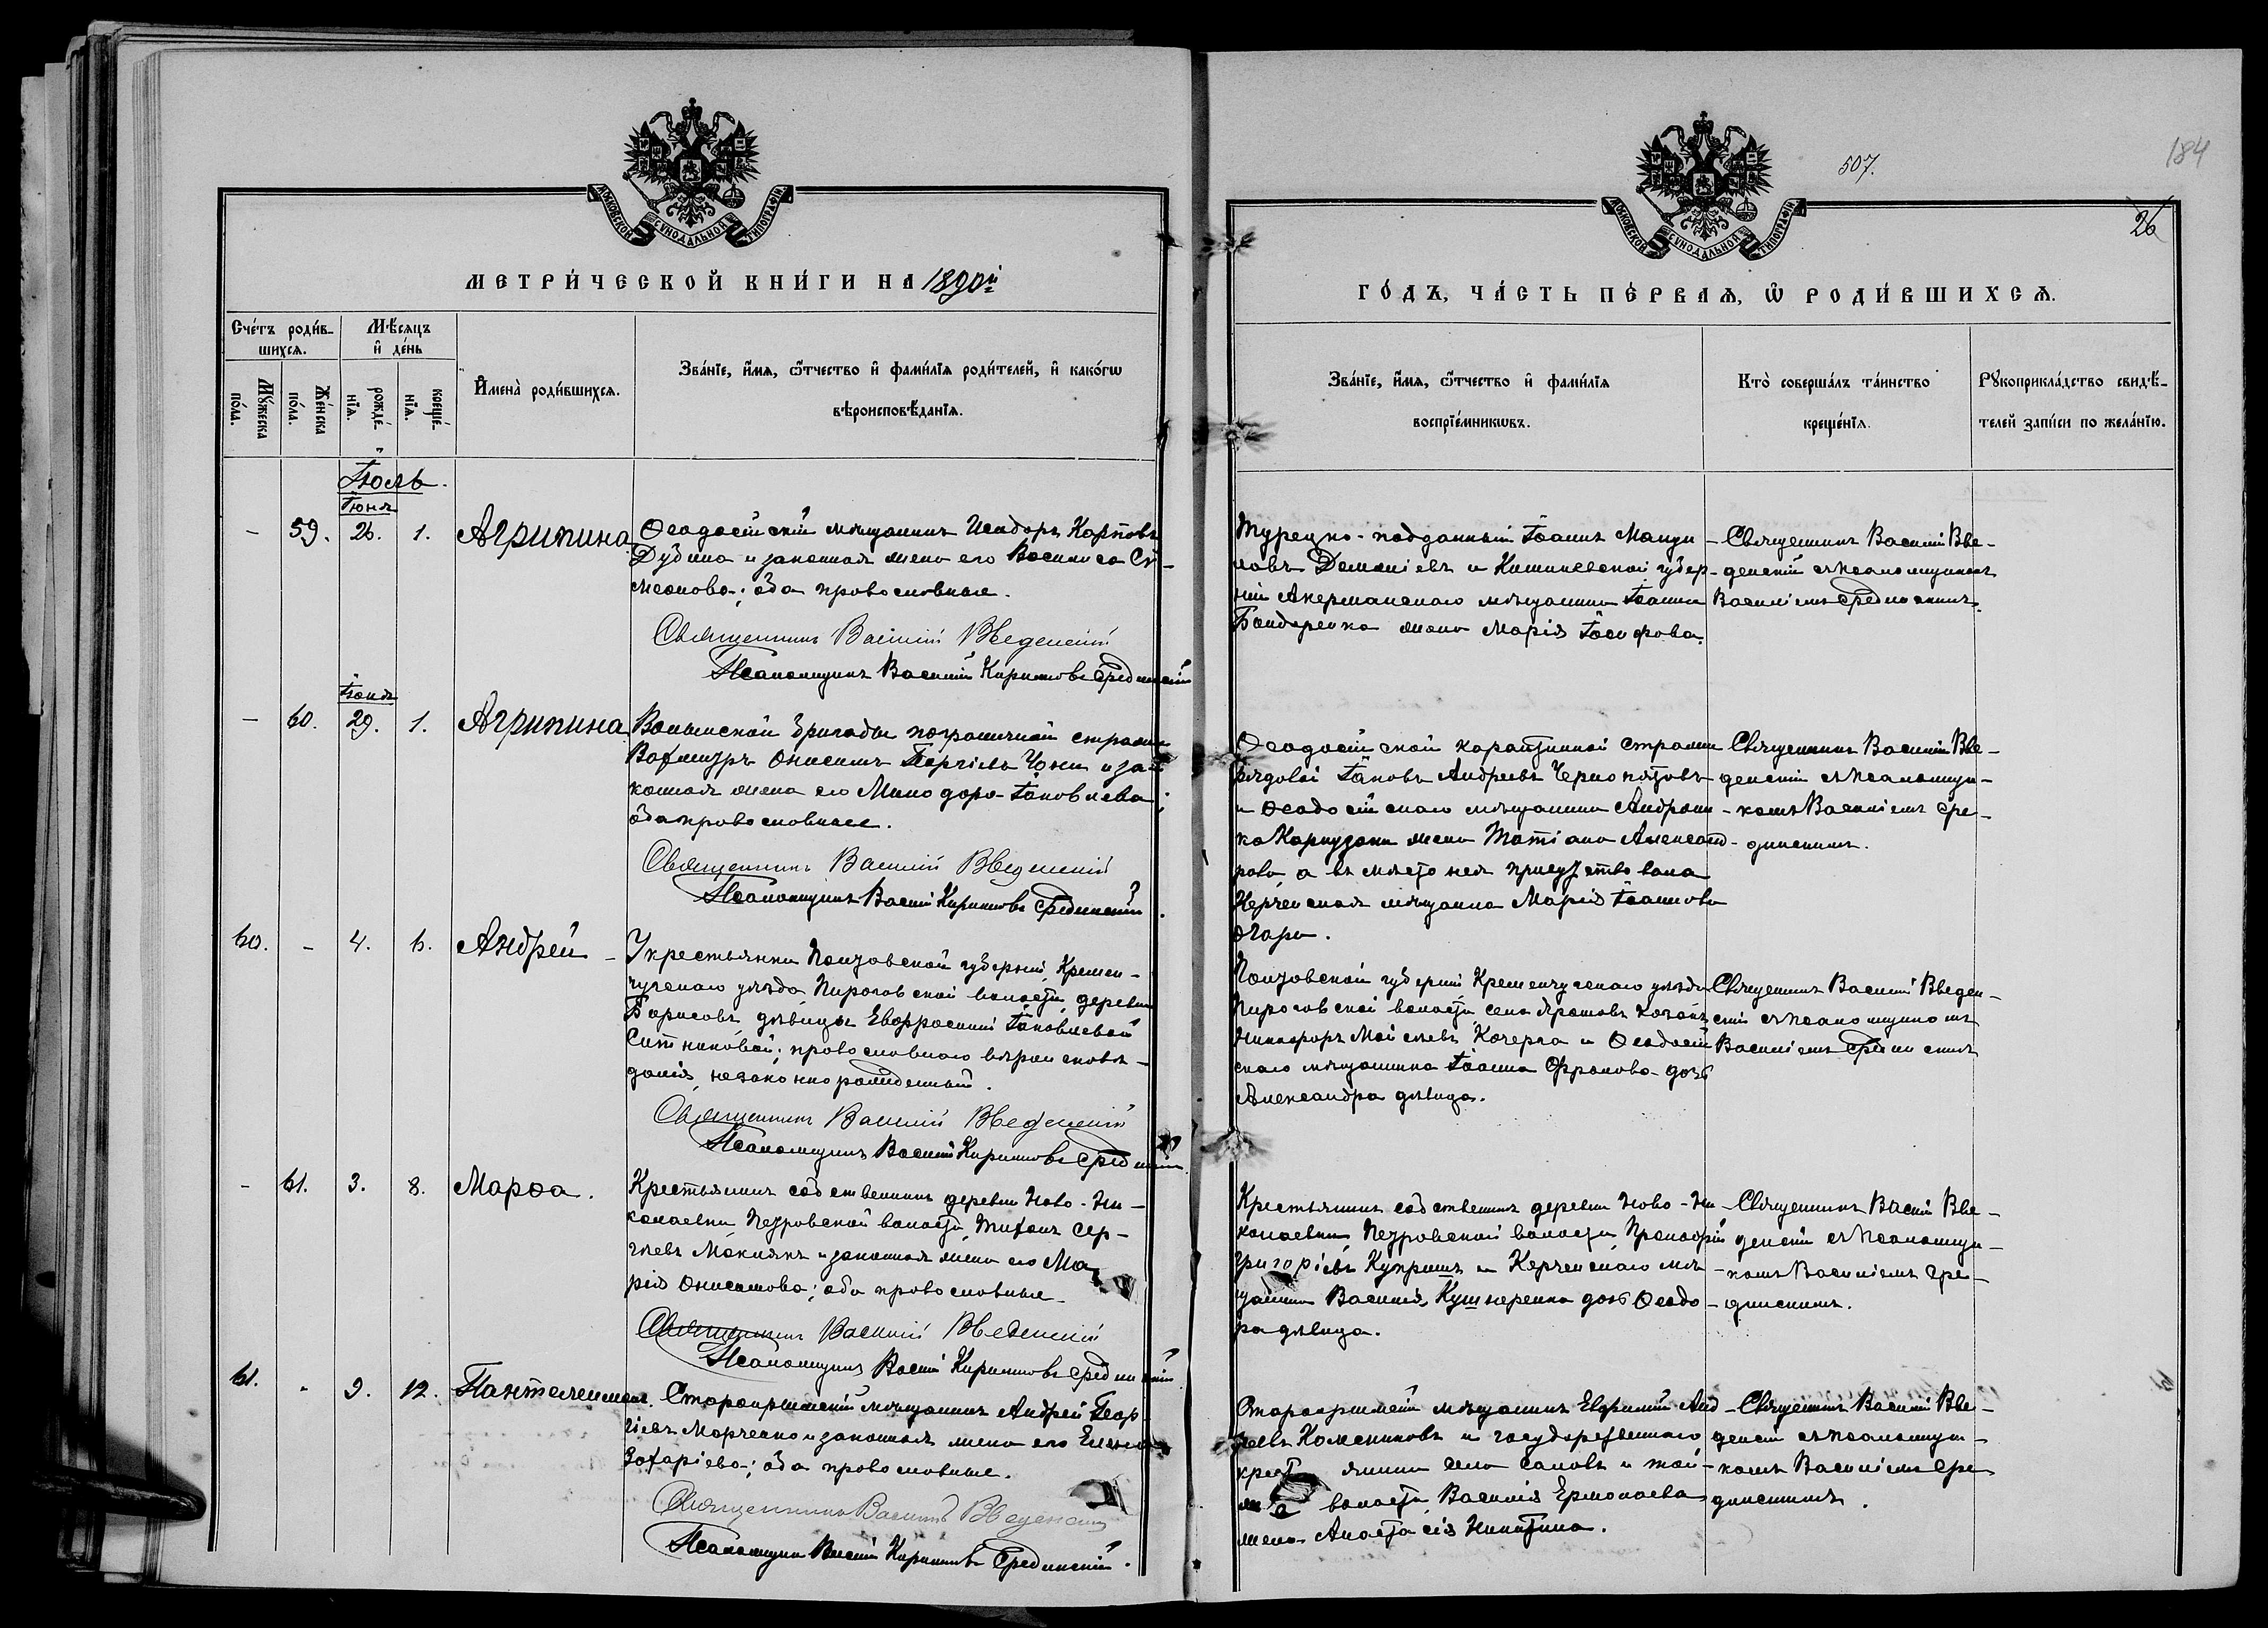 507.
184
26
МОСКОВСКОЙ СѴНОДАЛЬНОЙ ТИПОГРАФІИ
МОСКОВСКОЙ СѴНОДАЛЬНОЙ ТИПОГРАФІИ
МЕТРИ́ЧЕСКОЙ КНИ́ГИ НА 1890й
ГО́ДЪ, ЧА́СТЬ ПЕ́РВАЯ, Ѡ҆ РОДИ́ВШИХСЯ.
Сче́тъ роди́в-
шихся.
Мꙋ́жеска
по́ла.
Же́нска
по́ла.
Мѣ́сяцъ
и҆ де́нь
рожде́-
нїя.
креще́-
нїя.
И҆мена̀ роди́вшихся.
Зва́нїе, и҆́мя, ѻ҆́тчество и҆ фами́лїя роди́телей, и҆ како́гѡ
вѣроисповѣ́данїя.
Зва́нїе, и҆́мя, ѻ҆́тчество и҆ фами́лїя
воспрїе́мникѡвъ.
Кто̀ соверша́лъ та́инство
креще́нїя.
Рꙋкоприкла́дство свидѣ́-
телей за́писи по жела́нїю.
Іюль.
Іюня
- 59. 26. 1. Агрипина
Ѳеодосійскій мѣщанинъ Исидоръ Карповъ
Дубина и законная жена его Василиса Си-
меонова; оба православные.
Священникъ Василій Введенскій
Псаломщикъ Василій Кирилловъ Срединскій
Турецко-подданный Іоаннъ
и Кишиневской губер-
ніи Акерманскаго мѣщанина Іоанна
Бондаренка жена Марія Іосифова.
Священникъ Василій Вве-
денскій съ псаломщикомъ
Василіемъ Срединскимъ.
Іюня
- 60. 29. 1. Агрипина
Волынской бригады пограничной стражи
Вахмистръ Онисимъ Георгіевъ и за-
конная жена его Минодора Іаковлева;
оба православные.
Священникъ Василій Введенскій
Псаломщикъ Василій Кирилловъ Срединскій.
Ѳеодосійской карантинной стражи
рядовой Іаковъ Андреевъ
и Ѳеодосійскаго мѣщанина
жена Татіана Александ-
рова, а въ мѣсто нея присутствовала
Керченская мѣщанка Марія Іоаннова
Священникъ Василій Вве-
денскій съ псаломщи-
комъ Василіемъ Сре-
динскимъ.
60. - 4. 6. Андрей
У крестьянки Полтавской губерніи, Кремен-
чугскаго уѣзда, Пироговской волости, деревни
Борисовъ, дѣвицы Евфросиніи Іаковлевой
Ситниковой; православнаго вѣроисповѣ-
данія, незаконнорожденный.
Священникъ Василій Введенскій
Псаломщикъ Василій Кирилловъ Срединскій.
Полтавской губерніи, Кременчугскаго уѣзда
Пироговской волости села козакъ
Никифоръ Кочерга и Ѳеодосій-
скаго мѣщанина Іоанна дочь
Александра дѣвица.
Священникъ Василій Введен-
скій съ псаломщикомъ
Василіемъ Срединскимъ
- 61. 3. 8. Марѳа.
Крестьянинъ собственникъ деревни Ново-Ни-
колаевки Петровской волости, Тихонъ Сер-
гѣевъ и законная жена его Ма-
рія Онисимова; оба православные.
Священникъ Василій Введенскій
Псаломщикъ Василій Кирилловъ Срединскій
Крестьянинъ собственникъ деревни Ново-Ни-
колаевки, Петровской волости, Прокофій
Григоріевъ и Керченскаго мѣ-
щанина Василія Кушнеренка дочь Ѳеодо-
ра дѣвица.
Священникъ Василій Вве-
денскій съ псаломщи-
комъ Василіемъ Сре-
динскимъ.
61. - 9. 12. Пантелеимонъ.
Старокрымскій мѣщанинъ Андрей Геор-
гіевъ Марченко и законная жена его Елена
Захаріева; оба православные.
Священникъ Василій Введенскій
Псаломщикъ Василій Кирилловъ Срединскій.
Старокрымскій мѣщанинъ Евфимій Анд-
реевъ и государственнаго
крестьянина села и той-
же волости Василія Ермолаева
жена Анастасія Никитина.
Священникъ Василій Вве-
денскій съ псаломщи-
комъ Василіемъ Сре-
динскимъ.